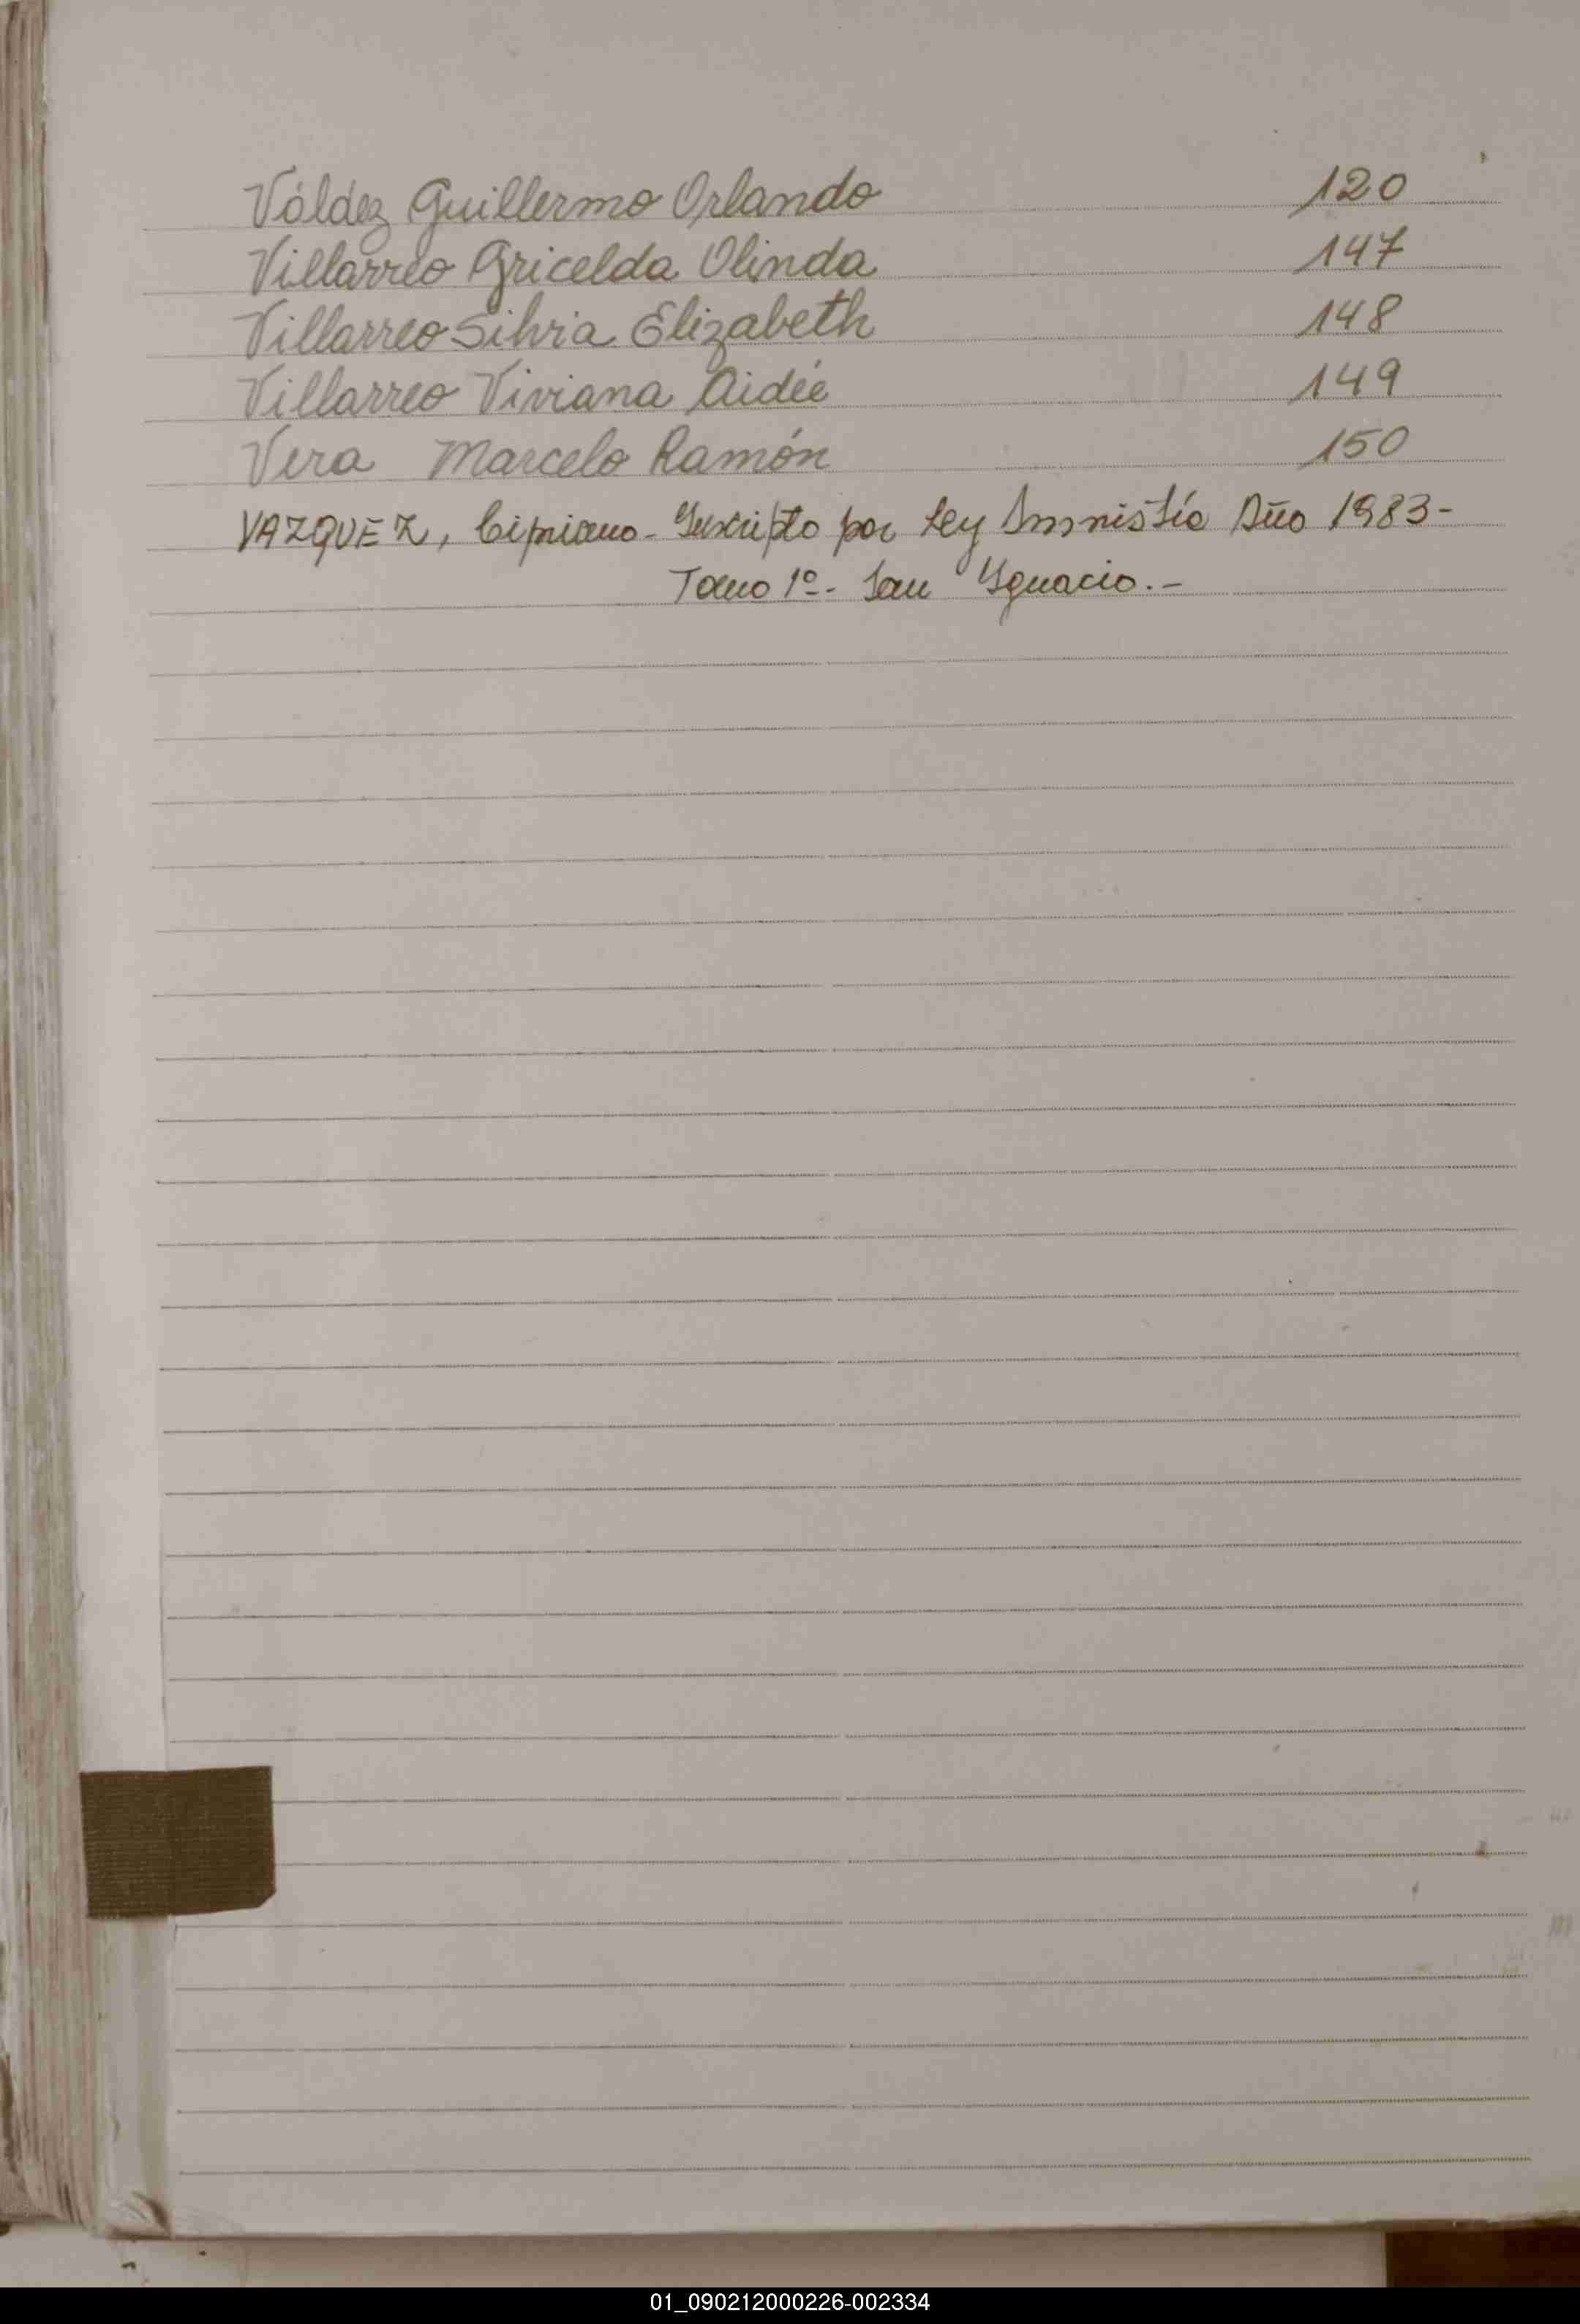 Váldez Guillermo Orlando 120
Villarreo Gricelda Olinda 147
Villarreo Silvia Elizabeth 148
Villarreo Viviana Aidée 149
Vera Marcelo Ramón 150
VAZQUEZ, Cipriano - Inscripto por Ley Amnistía Año 1983-
Tomo 1º - San Ygnacio.-
01_090212000226-002334